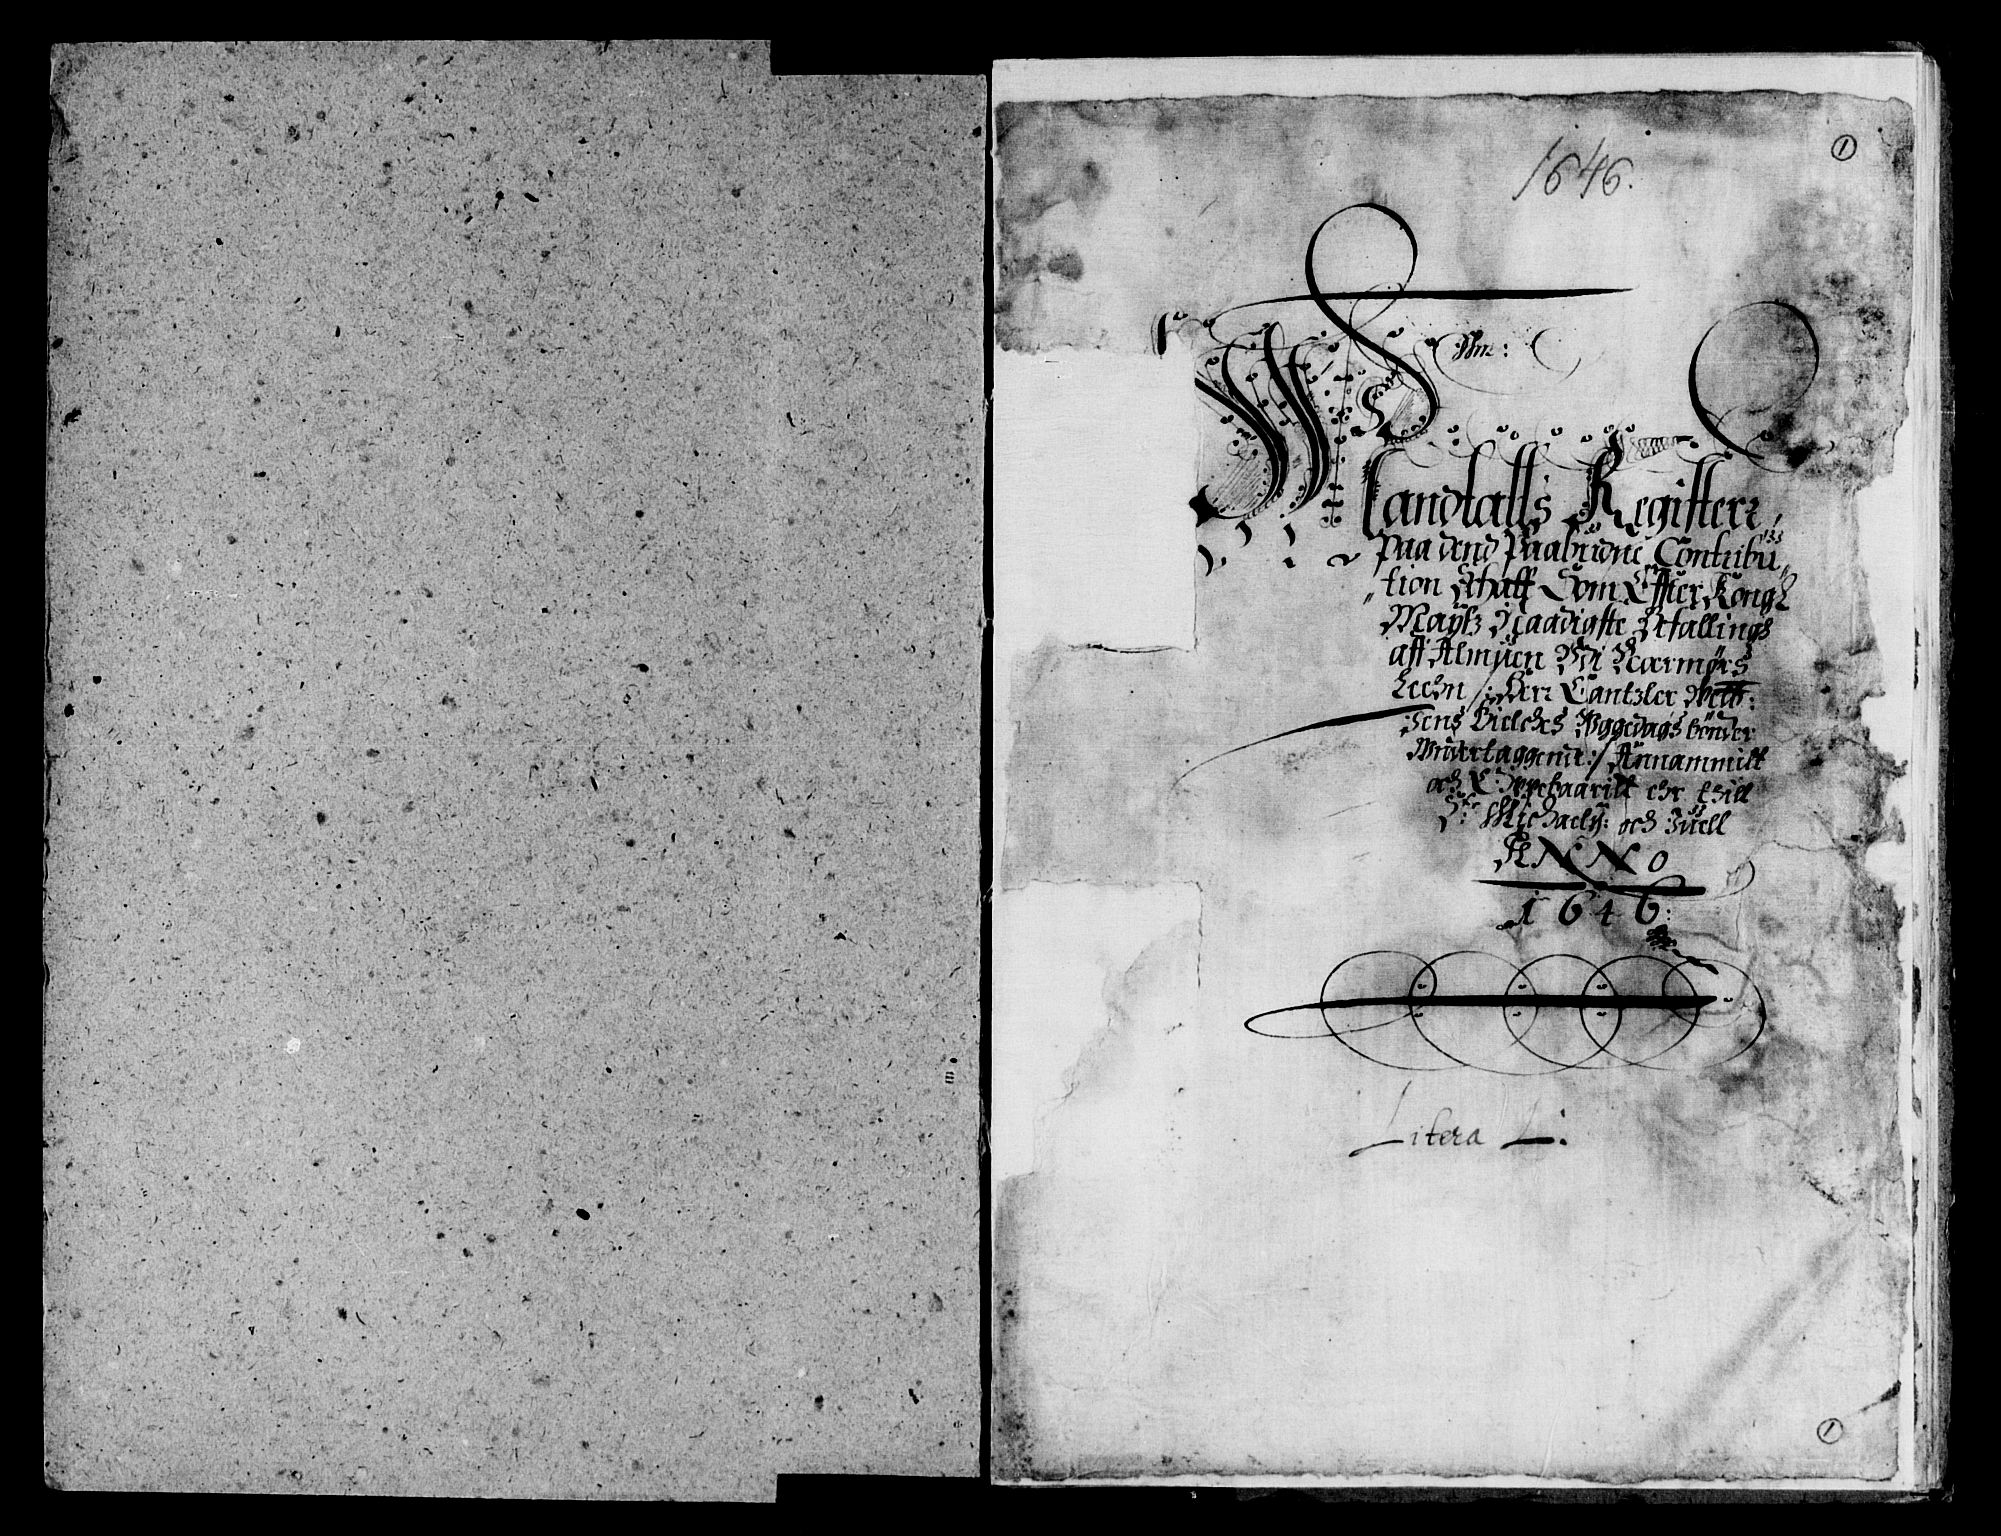 1
1646.
Mandtalls Register
Paa dend Paabudne Contribu
tion Schatt Som Effter Kongl
Maytz Naadigste Befallings
aff Almuen Wdi Normørs
Leehn /: Herr Cantzler Welb:
Jens Bielckes Wggedags bønder
Wndertaggende :/ Annammitt
och Oppebaaritt ehr thill
Michaely: och Juell
ANNO
1646:
Litera L:
1